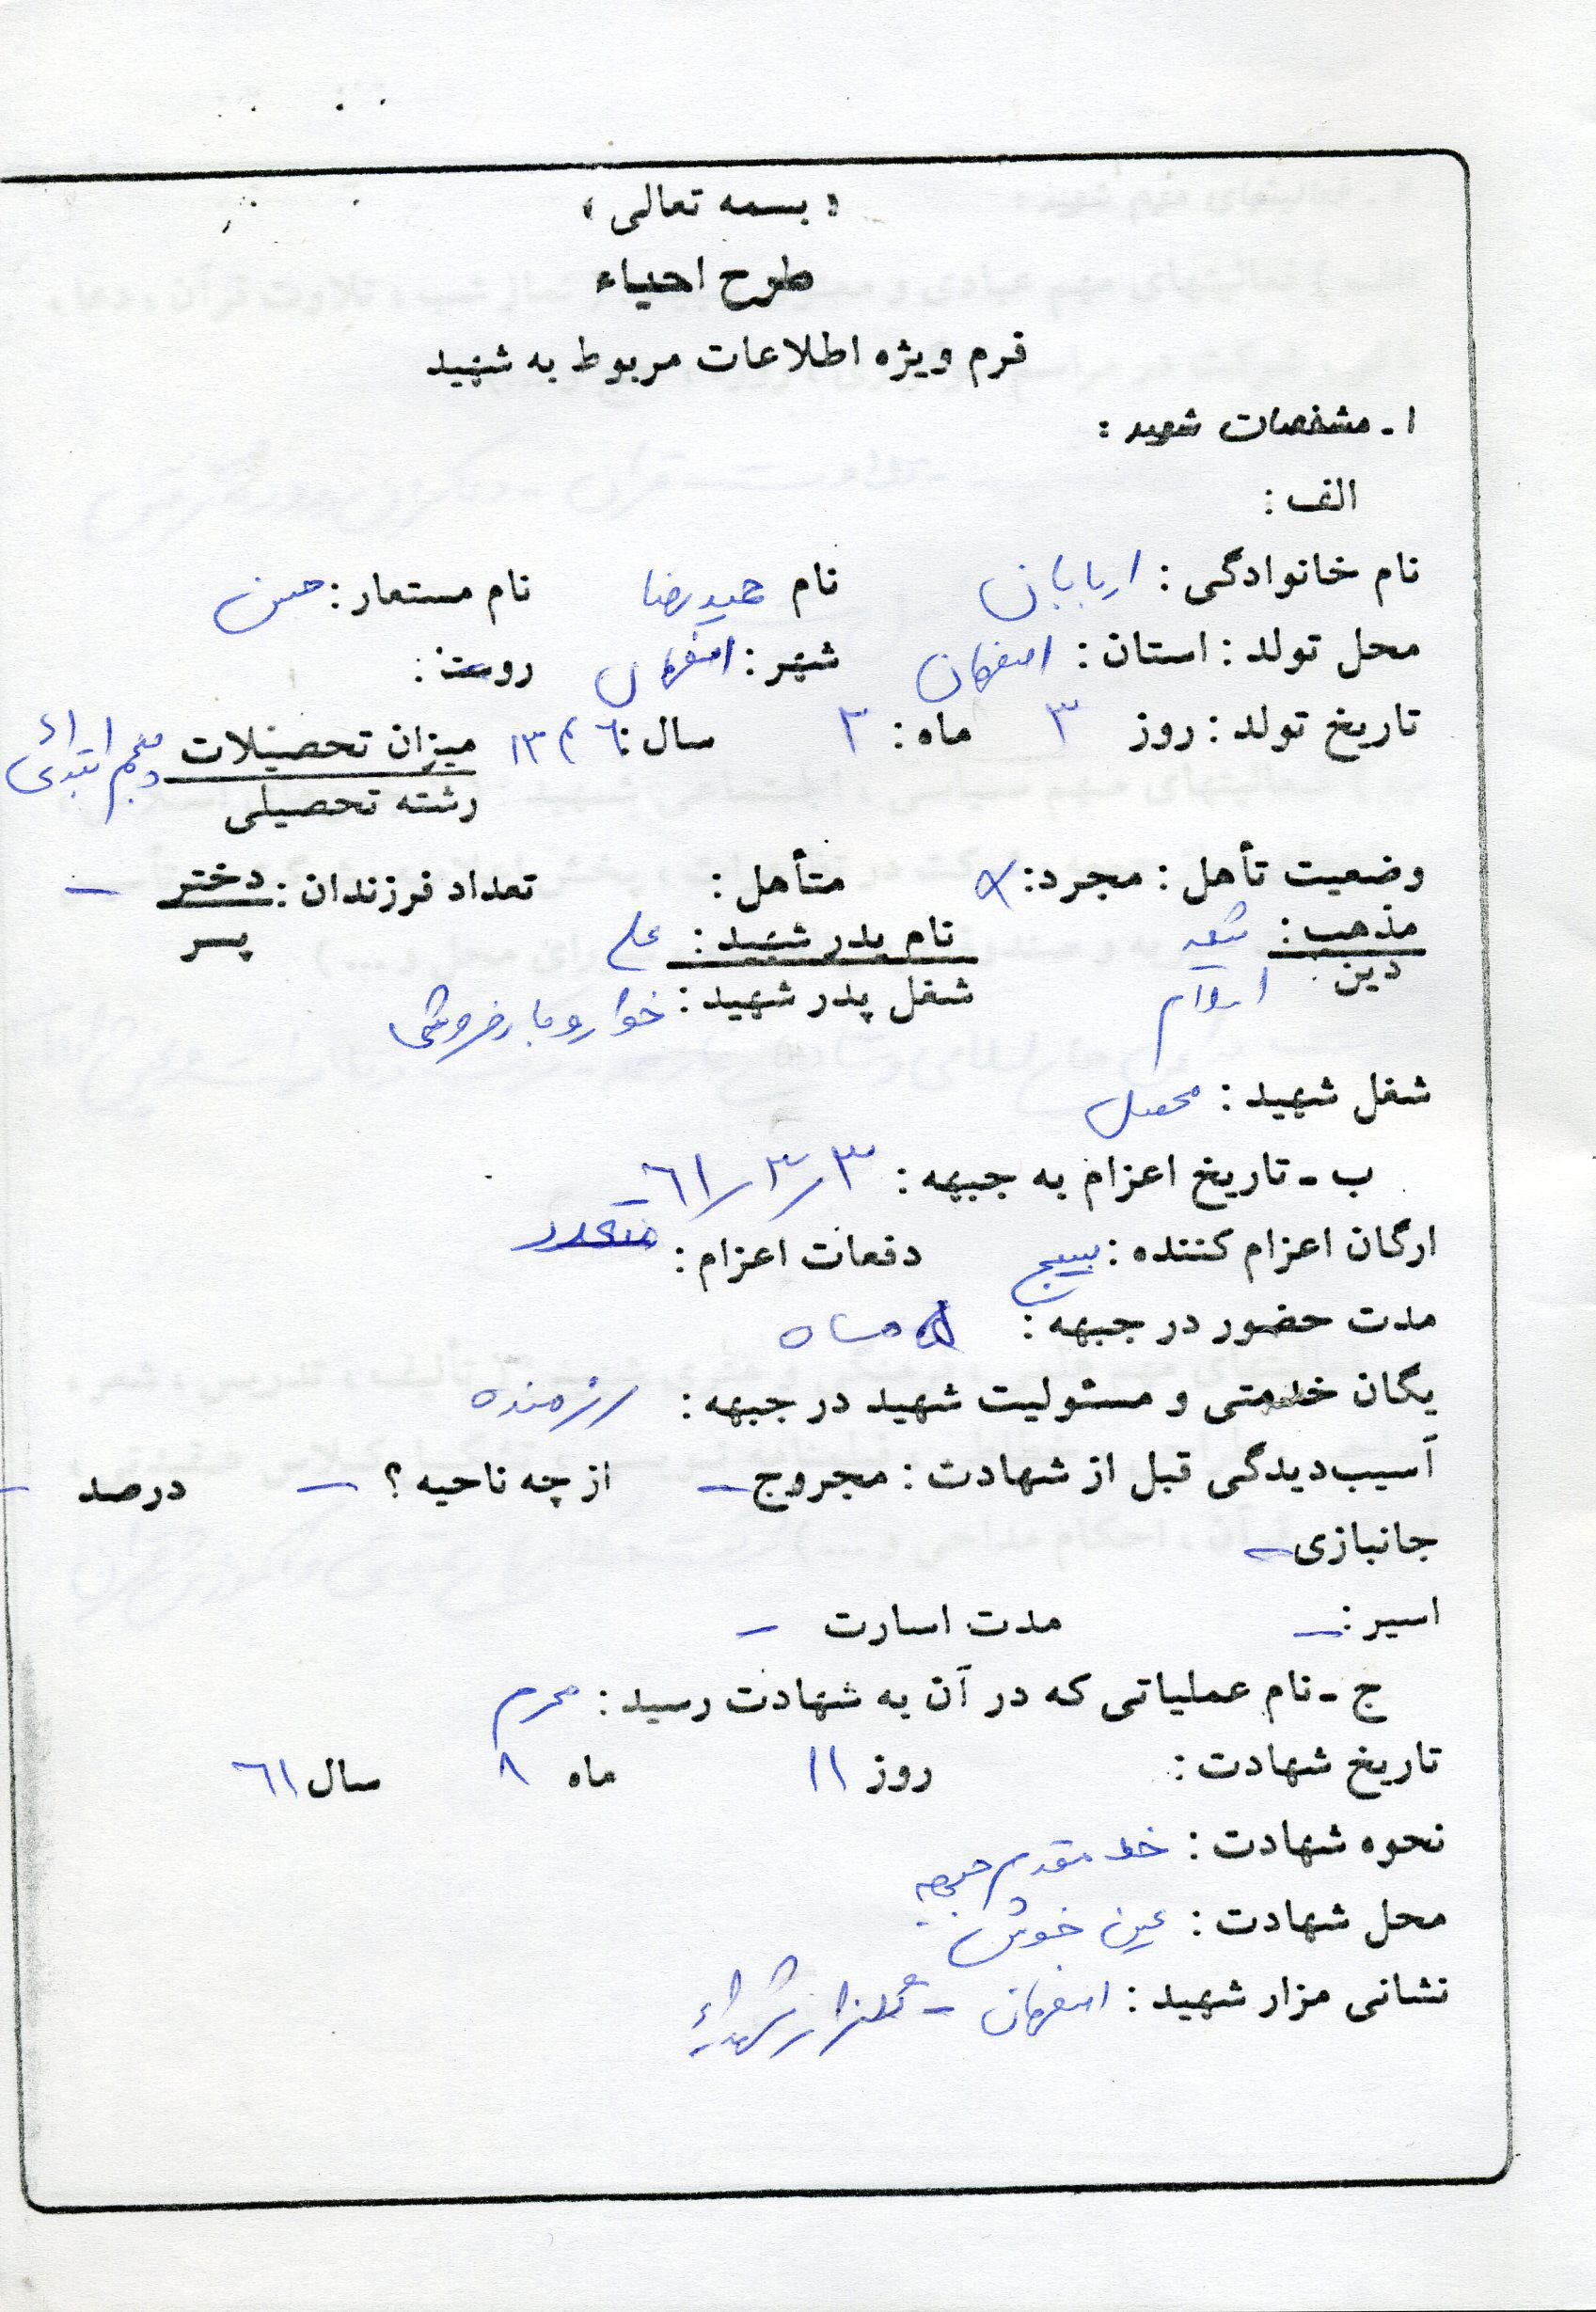 « بسمه تعالی »
طرح احیاء
فرم ویژه اطلاعات مربوط به شهید
۱ - مشخصات شهید :
الف :
نام خانوادگی : اربابان نام حمیدرضا نام مستعار : حسن
محل تولد : استان : اصفهان شهر : اصفهان روستا :
تاریخ تولد : روز ۳ ماه : ۳ سال : ۱۳۴۶ میزان تحصیلات پنجم ابتدائی
رشته تحصیلی
وضعیت تأهل : مجرد : × متأهل : تعداد فرزندان : دختر –
پسر
مذهب : شیعه نام پدر شهید : علی
دین اسلام شغل پدر شهید : خواروبارفروشی
شغل شهید : محصل
ب - تاریخ اعزام به جبهه : ۶۱/۳/۳
ارگان اعزام کننده : بسیج دفعات اعزام : متعدد
مدت حضور در جبهه : ۵ ماه
یگان خدمتی و مسئولیت شهید در جبهه : رزمنده
آسیب‌دیدگی قبل از شهادت : مجروح – از چه ناحیه ؟ – درصد –
جانبازی –
اسیر : – مدت اسارت –
ج - نام عملیاتی که در آن به شهادت رسید : محرم
تاریخ شهادت : روز ۱۱ ماه ۸ سال ۶۱
نحوه شهادت : خط مقدم جبهه
محل شهادت : عین خوش
نشانی مزار شهید : اصفهان - گلزار شهداء